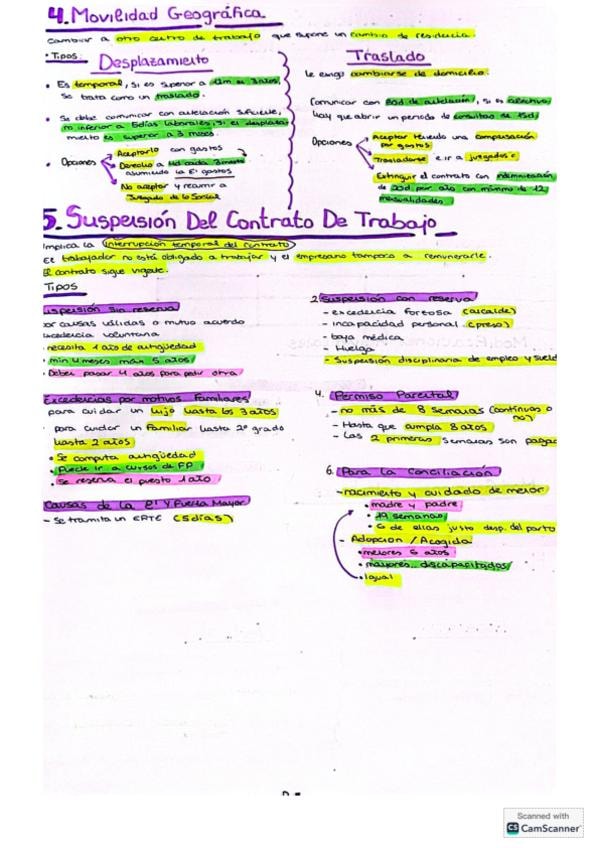 4. Movilidad Geográfica
Cambiar a otro centro de trabajo que supone un cambio de residencia.
• Tipos:
Desplazamiento
• Es temporal, si es superior a 12m en 3 años, se trata como un traslado.
• Se debe comunicar con antelación suficiente,
no inferior a 5 días laborales, si el desplaza-
miento es superior a 3 meses.
• Opciones
Aceptarlo con gastos
Derecho a 4d cada 3 meses
asumiendo la Eª gastos
No aceptar y recurrir a
Juzgado de lo Social
Traslado
Le exige cambiarse de domicilio.
Comunicar con 30d de antelación, si es colectivo
hay que abrir un periodo de consultas de 15d.
Opciones
Aceptar teniendo una compensación
por gastos
Trasladarse e ir a juzgados
Extinguir el contrato con indemnización
de 20d por año con mínimo de 12
mensualidades
5. Suspensión Del Contrato De Trabajo
Implica la interrupción temporal del contrato
El trabajador no está obligado a trabajar y el empresario tampoco a remunerarle.
El contrato sigue vigente.
Tipos
uspensión sin reserva
por causas válidas o mutuo acuerdo
excedencia voluntaria
• necesita 1 año de antigüedad
• min 4 meses máx 5 años
• Debes pasar 4 años para pedir otra
2. Suspensión con reserva
- excedencia forzosa (alcalde)
- incapacidad personal (preso)
- baja médica
- Huelga
- Suspensión disciplinaria de empleo y sueld
Excedencias por motivos Familiares
para cuidar un hijo hasta los 3 años
para cuidar un Familiar hasta 2º grado
hasta 2 años
• Se computa antigüedad
• Puede ir a cursos de FP
• Se reserva el puesto 1 año
4. Permiso Parental
- no más de 8 semanas (continuas o
no)
- Hasta que cumpla 8 años
- Las 2 primeras semanas son pagac
Causas de la Eª y Fuerza Mayor
- Se tramita un ERTE (5 días)
6. Para la Conciliación
- nacimiento y cuidado de menor
• madre y padre
• 19 semanas
• 6 de ellas justo desp. del parto
- Adopción / Acogida
• menores 6 años
• mayores.. discapacitados
• Igual
Scanned with
CS CamScanner